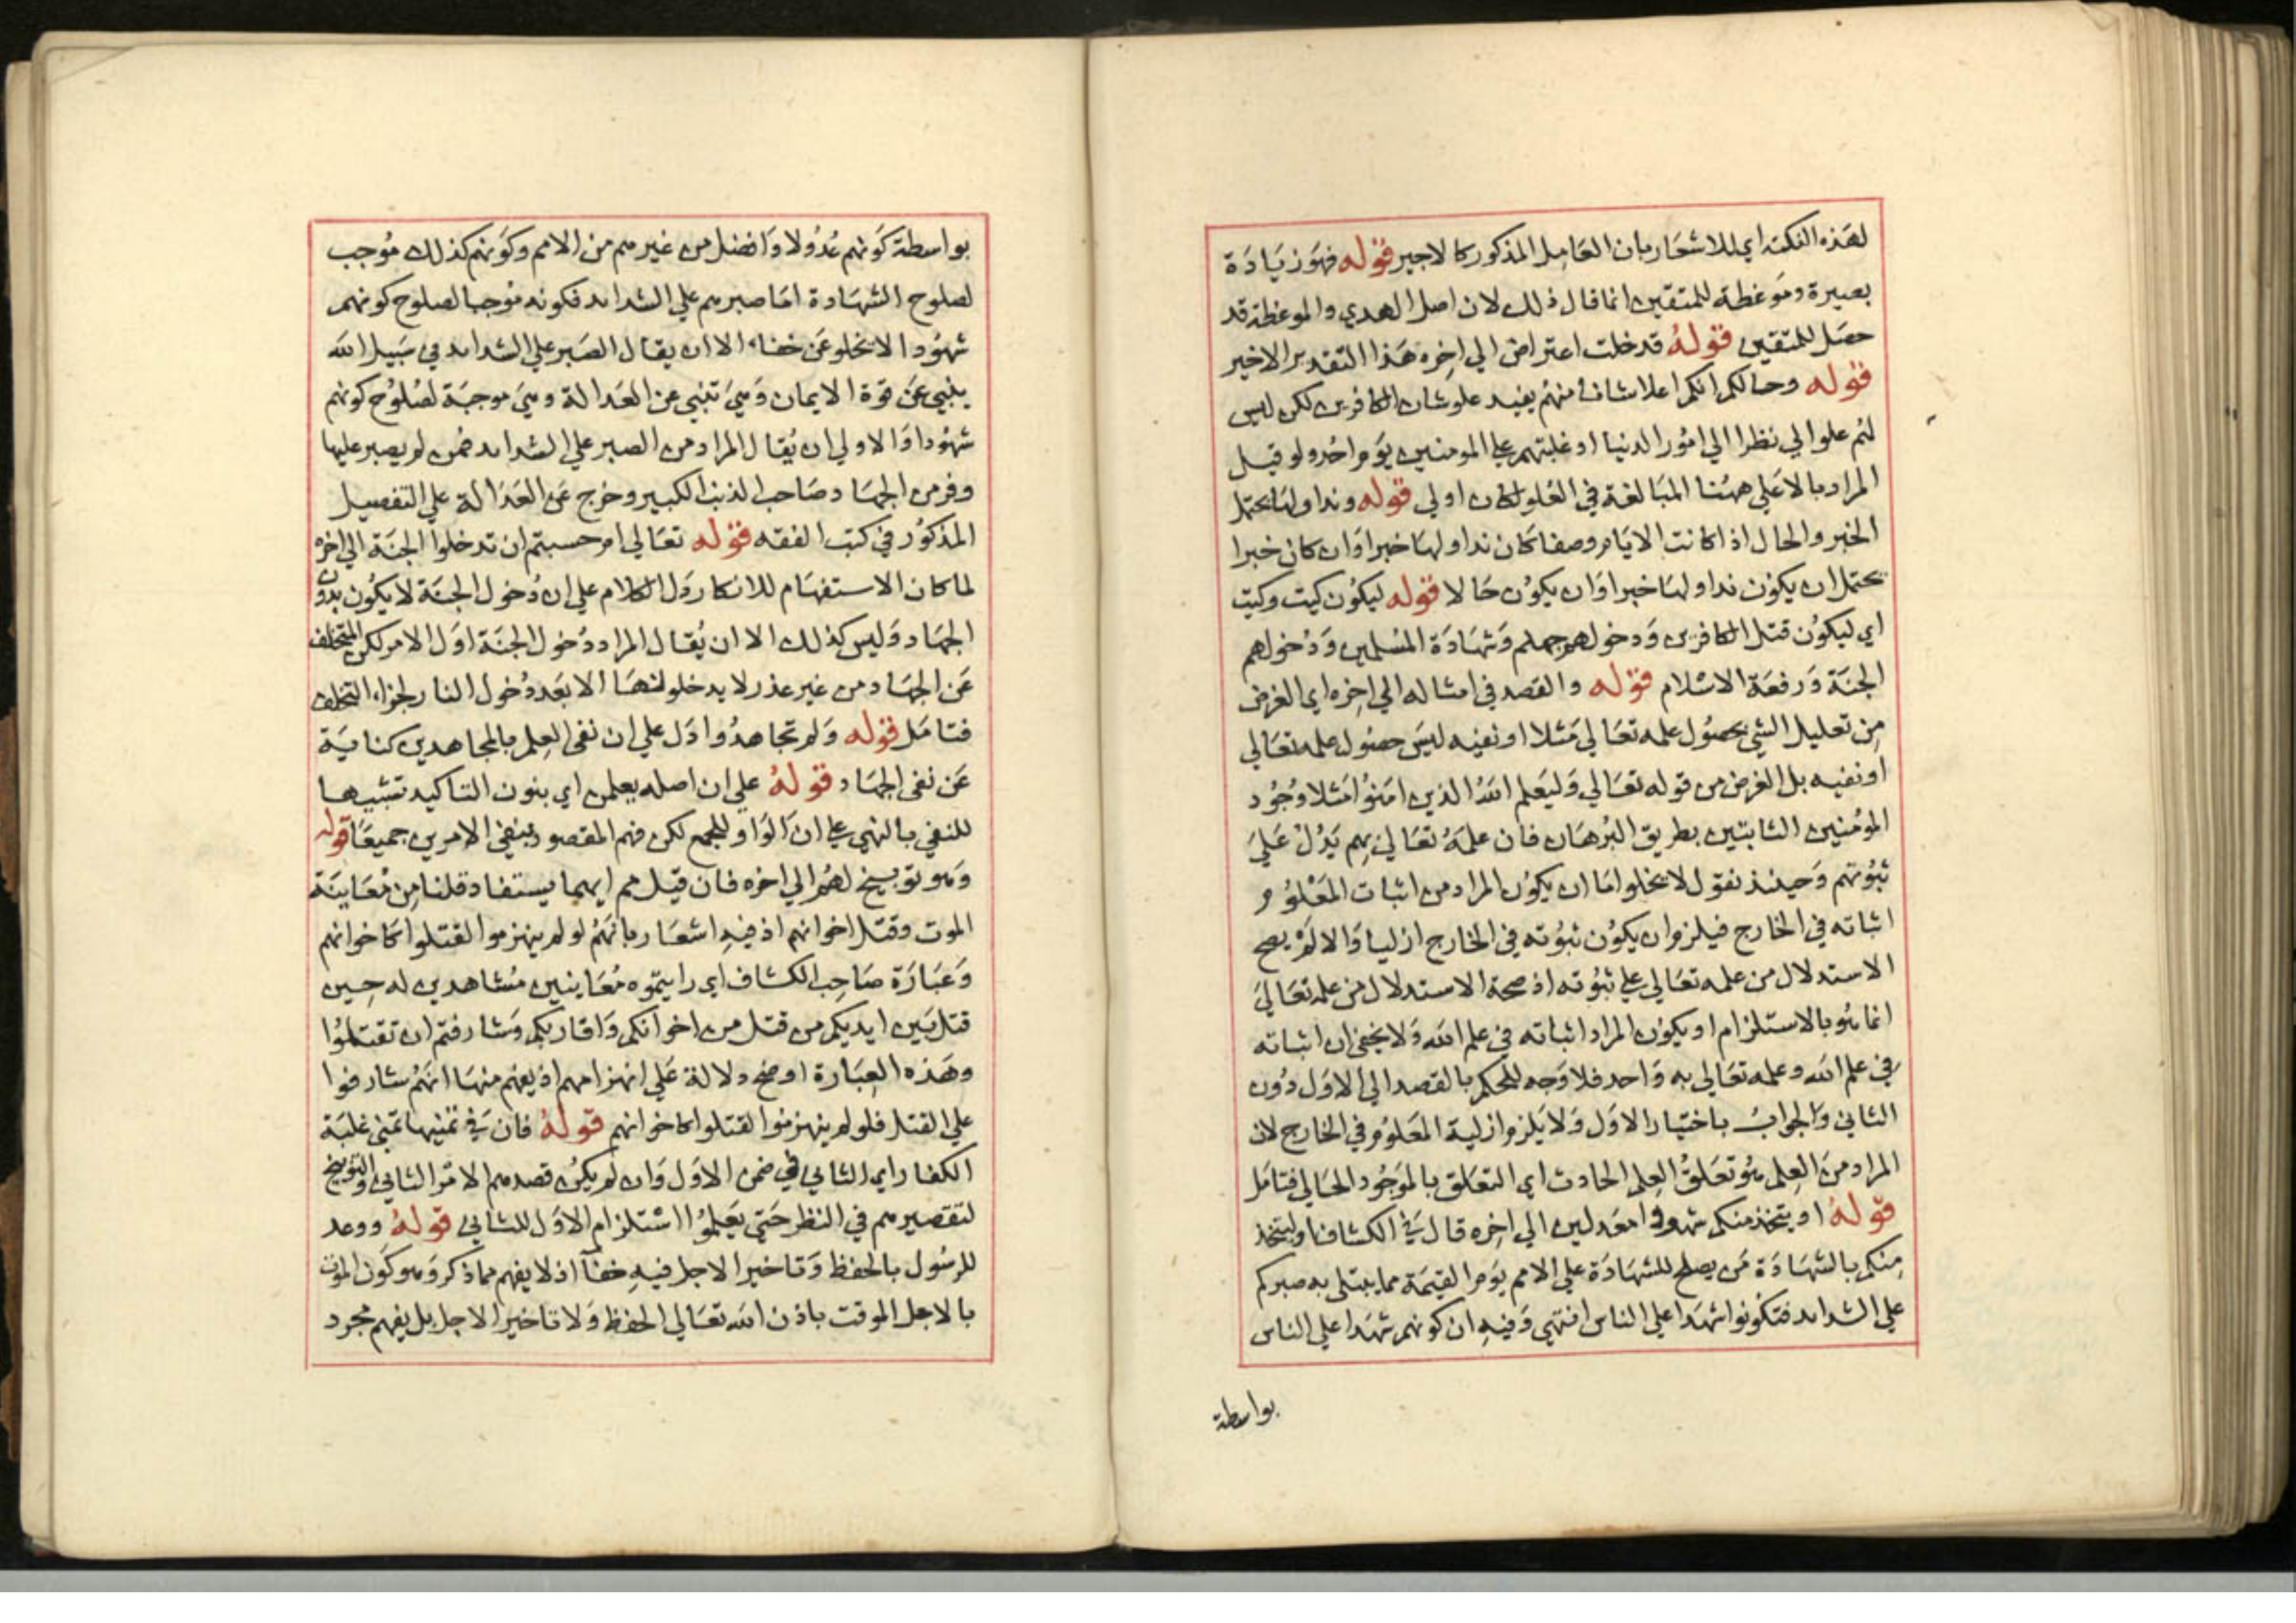 لهذه النكتة اي للاشعار بان العامل المذكور كالاجير قوله فهو زيادة
بصيرة وموعظة للمتقين انما قال ذلك لان اصل الهدي والموعظة قد
حصل للمتقين قوله قد خلت اعتراض الي اخره هذا التقدير الاخير
قوله وحالكم انكم اعلا شانا منهم يفيد علو شان الكافرين لكن ليس
لهم علو الي نظرا الي امور الدنيا او غلبتهم علي المومنين يوم احد ولو قيل
المراد بالاعلي ههنا المبالغة في العلو لكان اولي قوله ونداولها يحتمل
الخبر والحال اذا كانت الايام وصفا كان نداولها خبرا وان كان خبرا
يحتمل ان يكون نداولها خبرا وان يكون حالا قوله ليكون كيت وكيت
اي ليكون قتل الكافرين ودخولهم جهنم وشهادة المسلمين ودخولهم
الجنة ورفعة الاسلام قوله والقصد في امثاله الي اخره اي الغرض
من تعليل الشي بحصول علمه تعالي مثلا او نفيه ليس حصول علمه تعالي
او نفيه بل الغرض من قوله تعالي وليعلم الله الذين امنوا مثلا وجود
المومنين الثابتين بطريق البرهان فان علمه تعالي بهم يدل علي
ثبوتهم وحينئذ نقول لا يخلو اما ان يكون المراد من اثبات المعلوم
اثباته في الخارج فيلزم ان يكون ثبوته في الخارج ازليا والا لم يصح
الاستدلال من علمه تعالي علي ثبوته اذ صحة الاستدلال من علمه تعالي
انما هو بالاستلزام او يكون المراد اثباته في علم الله ولا يخفي ان اثباته
في علم الله وعلمه تعالي به واحد فلا وجه للحكم بالقصد الي الاول دون
الثاني والجواب باختيار الاول ولا يلزم ازلية المعلوم في الخارج لان
المراد من العلم هو تعلق العلم الحادث اي التعلق بالموجود الحالي فتامل
قوله او يتخذ منكم شهودا معدلين الي اخره قال في الكشاف او ليتخذ
منكم بالشهادة من يصلح للشهادة علي الامم يوم القيمة مما يبتلي به صبركم
علي الشدايد فتكونوا شهدا علي الناس انتهي وفيه ان كونهم شهدا علي الناس
بواسطة
بواسطة كونهم عدولا وافضل من غيرهم من الامم وكونهم كذلك موجب
لصلوح الشهادة اما صبرهم علي الشدايد فكونه موجبا لصلوح كونهم
شهودا لا يخلو عن خفاء الا ان يقال الصبر علي الشدايد في سبيل الله
ينبي عن قوة الايمان وهي تنبي عن العدالة وهي موجبة لصلوح كونهم
شهودا والاولي ان يقال المراد من الصبر علي الشدايد فمن لم يصبر عليها
وفر من الجهاد صاحب الذنب الكبير وخرج عن العدالة علي التفصيل
المذكور في كتب الفقه قوله تعالي ام حسبتم ان تدخلوا الجنة الي اخره
لما كان الاستفهام للانكار دل الكلام علي ان دخول الجنة لا يكون بدون
الجهاد وليس كذلك الا ان يقال المراد دخول الجنة اول الامر لكن المتخلف
عن الجهاد من غير عذر لا يدخلونها الا بعد دخول النار لجزاء التخلف
فتامل قوله ولم تجاهدوا دل علي ان نفي العلم بالمجاهدين كناية
عن نفي الجهاد قوله علي ان اصله يعلمن اي بنون التاكيد تشبيها
للنفي بالنهي علي ان الواو للجمع لكن فهم المقصود بنفي الامرين جميعا قوله
وهو توبيخ لهم الي اخره فان قيل مم ايهما يستفاد قلنا من معاينة
الموت وقتل اخوانهم اذ فيه اشعار بانهم لو لم ينهزموا لقتلوا كاخوانهم
وعبارة صاحب الكشاف اي رايتموه معاينين مشاهدين له حين
قتل بين ايديكم من قتل من اخوانكم واقاربكم وشارفتم ان تقتلوا
وهذه العبارة اوضح دلالة علي انهزامهم اذ يفهم منها انهم شارفوا
علي القتل فلو لم ينهزموا لقتلوا كاخوانهم قوله فان في تمنيها تمني غلبة
الكفار اي الثاني في ضمن الاول وان لم يكن قصدهم الامر الثاني والتوبيخ
لتقصيرهم في النظر حتي يعلموا استلزام الاول للثاني قوله ووعد
للرسول بالحفظ وتاخير الاجل فيه خفآ اذ لا يفهم مما ذكر وهو كون الموت
بالاجل الموقت باذن الله تعالي الحفظ ولا تاخير الاجل بل يفهم مجرد